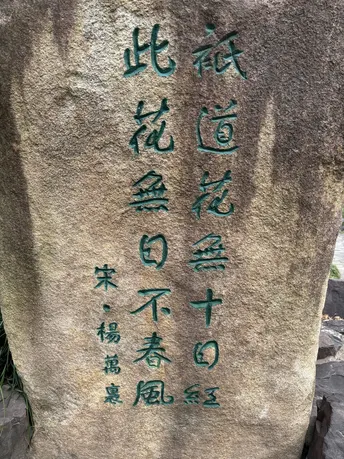 祇道花無十日經
此花無日不春風
宋·楊萬裏